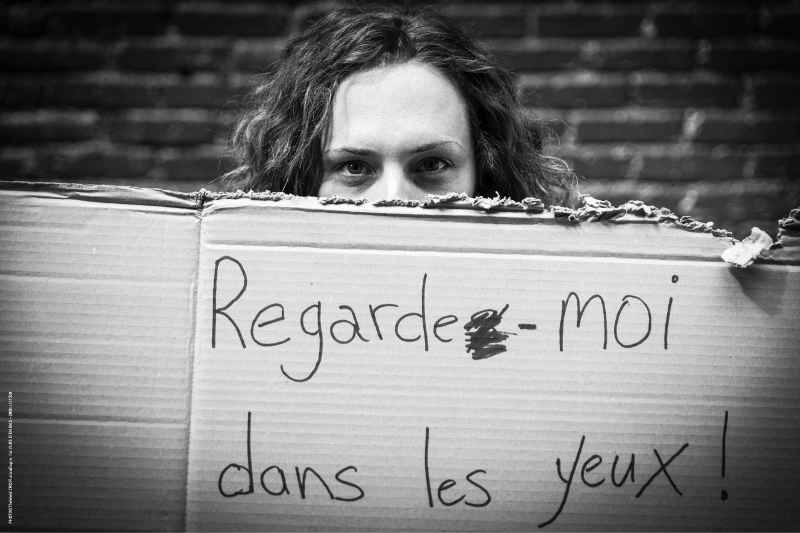 Regarde-moi
dans les yeux !